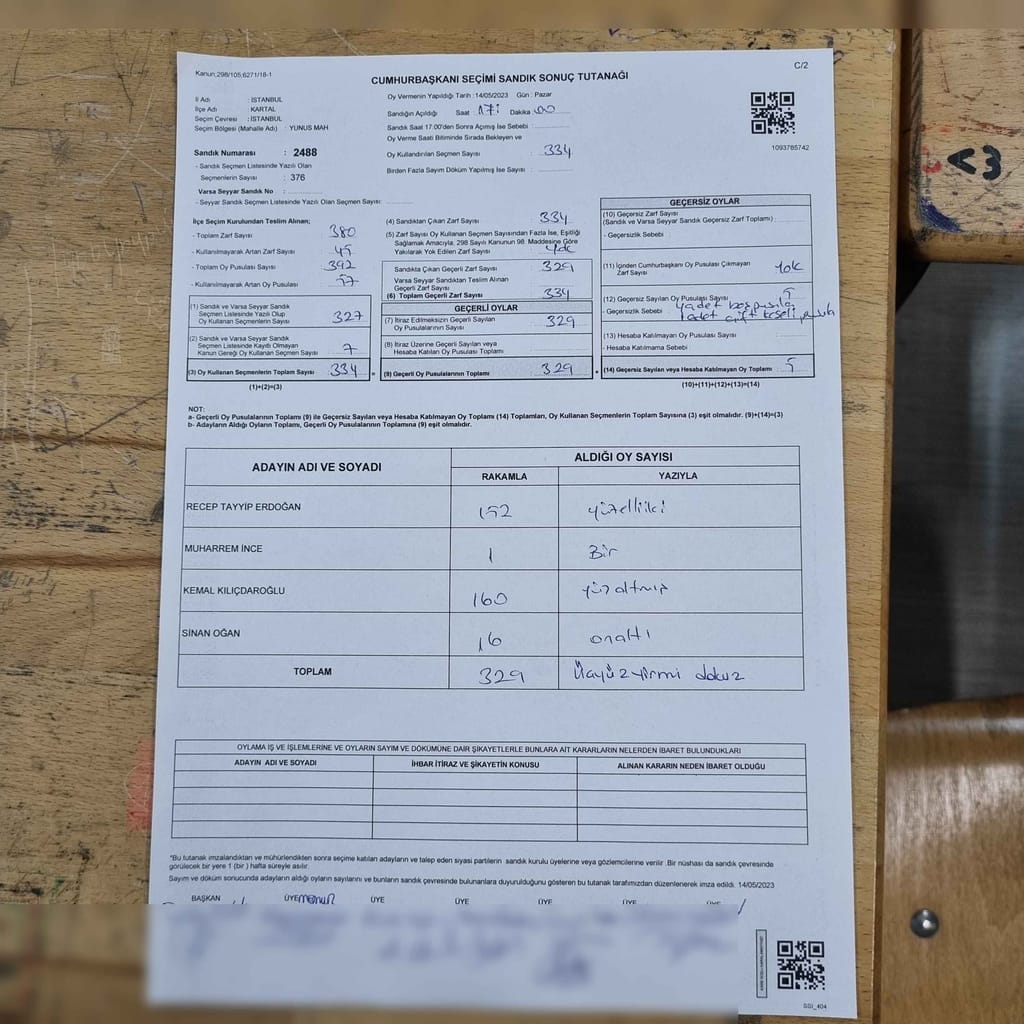 Kanun;298/105;6271/18-1
C/2
CUMHURBAŞKANI SEÇİMİ SANDIK SONUÇ TUTANAĞI
İl Adı : İSTANBUL
İlçe Adı : KARTAL
Seçim Çevresi : İSTANBUL
Seçim Bölgesi (Mahalle Adı) : YUNUS MAH
Sandık Numarası : 2488
- Sandık Seçmen Listesinde Yazılı Olan
Seçmenlerin Sayısı : 376
Varsa Seyyar Sandık No :
- Seyyar Sandık Seçmen Listesinde Yazılı Olan Seçmen Sayısı:
Oy Vermenin Yapıldığı Tarih : 14/05/2023 Gün : Pazar
Sandığın Açıldığı Saat : 17: Dakika : 00
Sandık Saat 17:00'den Sonra Açımış İse Sebebi :
Oy Verme Saati Bitiminde Sırada Bekleyen ve
Oy Kullandırılan Seçmen Sayısı : 334
Birden Fazla Sayım Döküm Yapılmış İse Sayısı :
1093785742
İlçe Seçim Kurulundan Teslim Alınan;
- Toplam Zarf Sayısı : 380
- Kullanılmayarak Artan Zarf Sayısı : 45
- Toplam Oy Pusulası Sayısı : 392
- Kullanılmayarak Artan Oy Pusulası : 57
(1) Sandık ve Varsa Seyyar Sandık
Seçmen Listesinde Yazılı Olup
Oy Kullanan Seçmenlerin Sayısı : 327
(2) Sandık ve Varsa Seyyar Sandık
Seçmen Listesinde Kayıtlı Olmayan
Kanun Gereği Oy Kullanan Seçmen Sayısı : 7
(3) Oy Kullanan Seçmenlerin Toplam Sayısı : 334
(1)+(2)=(3)
(4) Sandıktan Çıkan Zarf Sayısı : 334
(5) Zarf Sayısı Oy Kullanan Seçmen Sayısından Fazla İse, Eşitliği
Sağlamak Amacıyla, 298 Sayılı Kanunun 98. Maddesine Göre
Yakılarak Yok Edilen Zarf Sayısı : Yok
Sandıkta Çıkan Geçerli Zarf Sayısı : 329
Varsa Seyyar Sandıktan Teslim Alınan
Geçerli Zarf Sayısı :
(6) Toplam Geçerli Zarf Sayısı : 334
GEÇERLİ OYLAR
(7) İtiraz Edilmeksizin Geçerli Sayılan
Oy Pusulasının Sayısı : 329
(8) İtiraz Üzerine Geçerli Sayılan veya
Hesaba Katılan Oy Pusulası Toplamı :
(9) Geçerli Oy Pusulalarının Toplamı : 329
GEÇERSİZ OYLAR
(10) Geçersiz Zarf Sayısı
(Sandık ve Varsa Seyyar Sandık Geçersiz Zarf Toplamı) :
- Geçersizlik Sebebi :
(11) İçinden Cumhurbaşkanı Oy Pusulası Çıkmayan
Zarf Sayısı : Yok
(12) Geçersiz Sayılan Oy Pusulası Sayısı : 5
- Geçersizlik Sebebi : 4 adet boş pusula
1 adet çift kaşeli pusula
(13) Hesaba Katılmayan Oy Pusulası Sayısı :
- Hesaba Katılmama Sebebi :
(14) Geçersiz Sayılan veya Hesaba Katılmayan Oy Toplamı : 5
(10)+(11)+(12)+(13)=(14)
NOT:
a- Geçerli Oy Pusulalarının Toplamı (9) ile Geçersiz Sayılan veya Hesaba Katılmayan Oy Toplamı (14) Toplamları, Oy Kullanan Seçmenlerin Toplam Sayısına (3) eşit olmalıdır. (9)+(14)=(3)
b- Adayların Aldığı Oyların Toplamı, Geçerli Oy Pusulalarının Toplamına (9) eşit olmalıdır.
ADAYIN ADI VE SOYADI
ALDIĞI OY SAYISI
RAKAMLA YAZIYLA
RECEP TAYYİP ERDOĞAN 152 yüzelliiki
MUHARREM İNCE 1 Bir
KEMAL KILIÇDAROĞLU 160 yüzaltmış
SİNAN OĞAN 16 onaltı
TOPLAM 329 Üçyüzyirmi dokuz
OYLAMA İŞ VE İŞLEMLERİNE VE OYLARIN SAYIM VE DÖKÜMÜNE DAİR ŞİKAYETLERLE BUNLARA AİT KARARLARIN NELERDEN İBARET BULUNDUKLARI
ADAYIN ADI VE SOYADI İHBAR İTİRAZ VE ŞİKAYETİN KONUSU ALINAN KARARIN NEDEN İBARET OLDUĞU
*Bu tutanak imzalandıktan ve mühürlendikten sonra seçime katılan adayların ve talep eden siyasi partilerin sandık kurulu üyelerine veya gözlemcilerine verilir .Bir nüshası da sandık çevresinde
görülecek bir yere 1 (bir ) hafta süreyle asılır.
Sayım ve döküm sonucunda adayların aldığı oyların sayılarını ve bunların sandık çevresinde bulunanlara duyurulduğunu gösteren bu tutanak tarafımızdan düzenlenerek imza edildi. 14/05/2023
BAŞKAN ÜYE memur ÜYE ÜYE ÜYE ÜYE ÜYE
SSİ_404